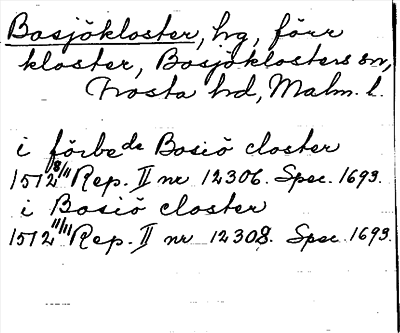 Bosjökloster, hg, förr
kloster, Bosjöklosters sn,
Frosta hd, Malm. l.
i förbe de Bosiö closter
1512 18/11 Rep. II nr 12306. Spec. 1693.
i Bosiö closter
1512 11/11 Rep. II nr 12308. Spec. 1693.